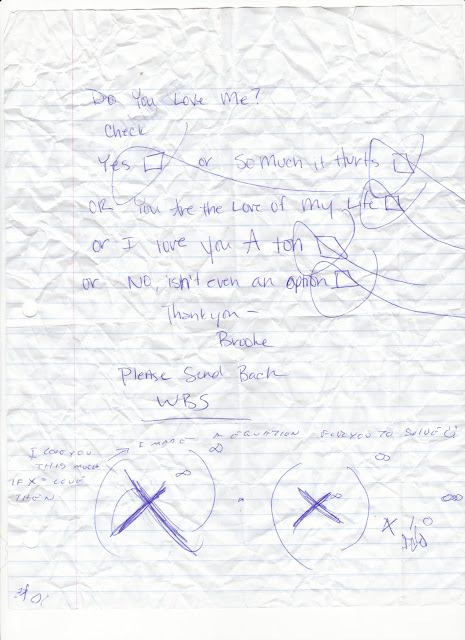 Do You Love Me?
Check
Yes □ or So Much it Hurts □
OR You Are the Love of My Life □
or I love you A ton □
or No, isn't even an option □
Thank you –
Brooke
Please Send Back
WBS
I MADE A EQUATION FOR YOU TO SOLVE
I LOVE YOU
THIS MUCH
IF X = LOVE
THEN
∞ ∞
X ∞ X ∞ ∞